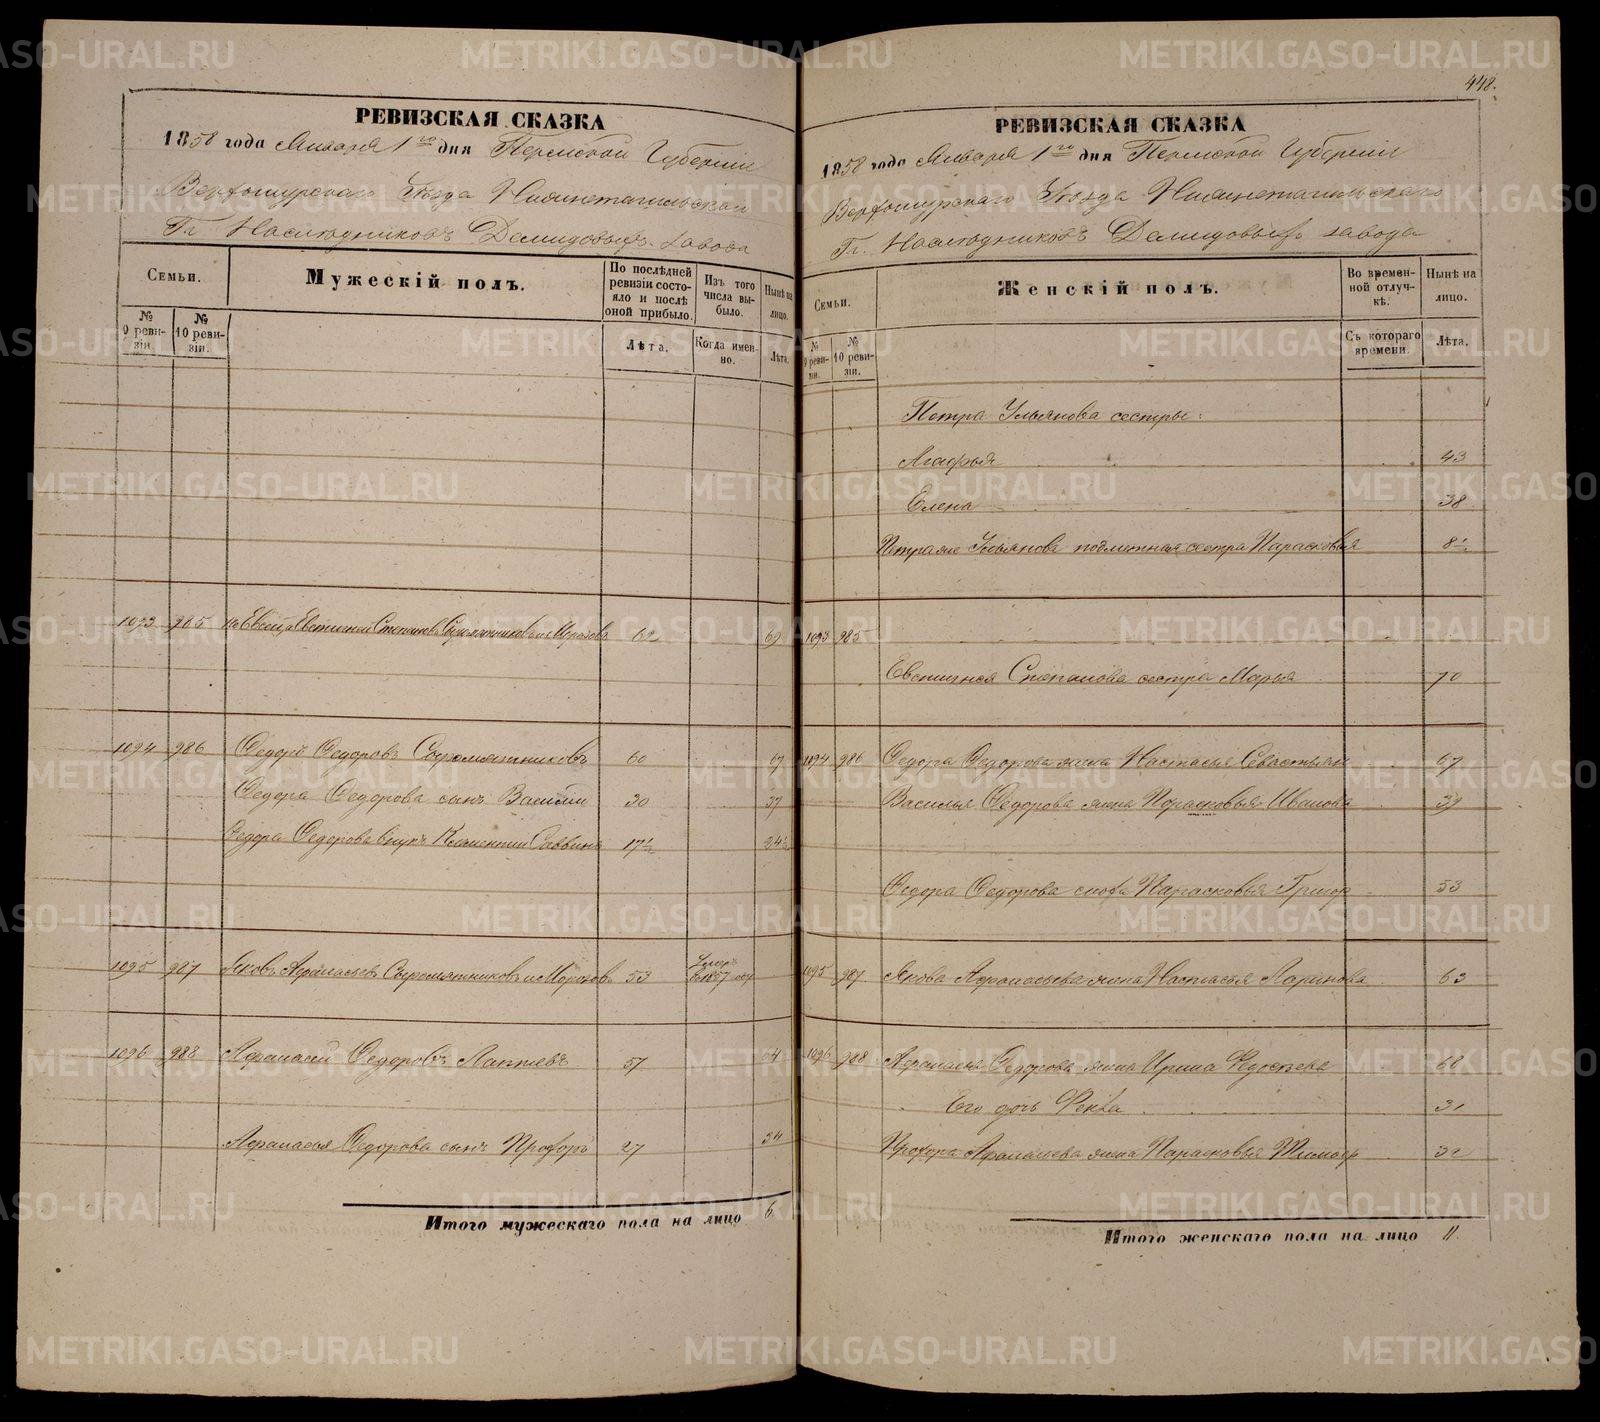 448.
РЕВИЗСКАЯ СКАЗКА
1858 года Января 1го дня Пермской Губернии
Верхотурскаго Уѣзда Нижнетагильскаго
Гг. Наслѣдниковъ Демидовыхъ завода
Семьи.
Мужескій полъ.
По послѣдней ревизіи состояло и послѣ оной прибыло.
Изъ того числа выбыло.
Нынѣ на лицо.
№ 9 ревизіи.
№ 10 ревизіи.
Лѣта.
Когда именно.
Лѣта.
1093 985 Евстигней Степановъ Сыромятниковъ и Морозовъ 62 69
1094 986 Федоръ Федоровъ Сыромятниковъ 60 67
Федора Федорова сынъ Василій 30 37
Федора Федорова внукъ Климентій Саввинъ 17½ 24½
1095 987 Яковъ Афанасьевъ Сыромятниковъ и Морозовъ 53 Умеръ въ 1857 году
1096 988 Афанасій Федоровъ Лаптевъ 57 64
Афанасья Федорова сынъ Прохоръ 27 34
Итого мужескаго пола на лицо 6
РЕВИЗСКАЯ СКАЗКА
1858 года Января 1го дня Пермской Губерніи
Верхотурскаго Уѣзда Нижнетагильскаго
Гг. Наслѣдниковъ Демидовыхъ завода
Семьи.
Женскій полъ.
Во временной отлучкѣ.
Нынѣ на лицо.
№ 9 ревизіи.
№ 10 ревизіи.
Съ котораго времени.
Лѣта.
Петра Ульянова сестры:
Агафья 43
Елена 38
Петра же Ульянова сестра Парасковья 8½
1093 985
Евстигнея Степанова сестра Марья 70
1094 986 Федора Федорова жена Настасья Севастьян 67
Василья Федорова жена Парасковья Иванова 39
Федора Федорова сноха Парасковья Григор 53
1095 987 Якова Афанасьева жена Настасья Ларинова 63
1096 988 Афанасья Федорова жена Ирина Федосѣева 68
Его дочь Фекла 31
Прохора Афанасьева жена Парасковья Тимоф 32
Итого женскаго пола на лицо 11.
METRIKI.GASO-URAL.RU